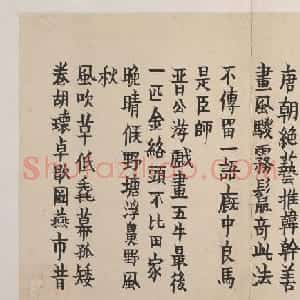 唐朝絕藝推韓幹善
畫風駿霧鬣奇此法
不傳留一語廄中良馬
是臣師
晉公游戲畫五牛最後
一匹金絡頭不比田家
晚晴候野塘浮鼻野風
秋
風吹草低毳幕孤矮
卷胡瓌卓歇圖燕市昔